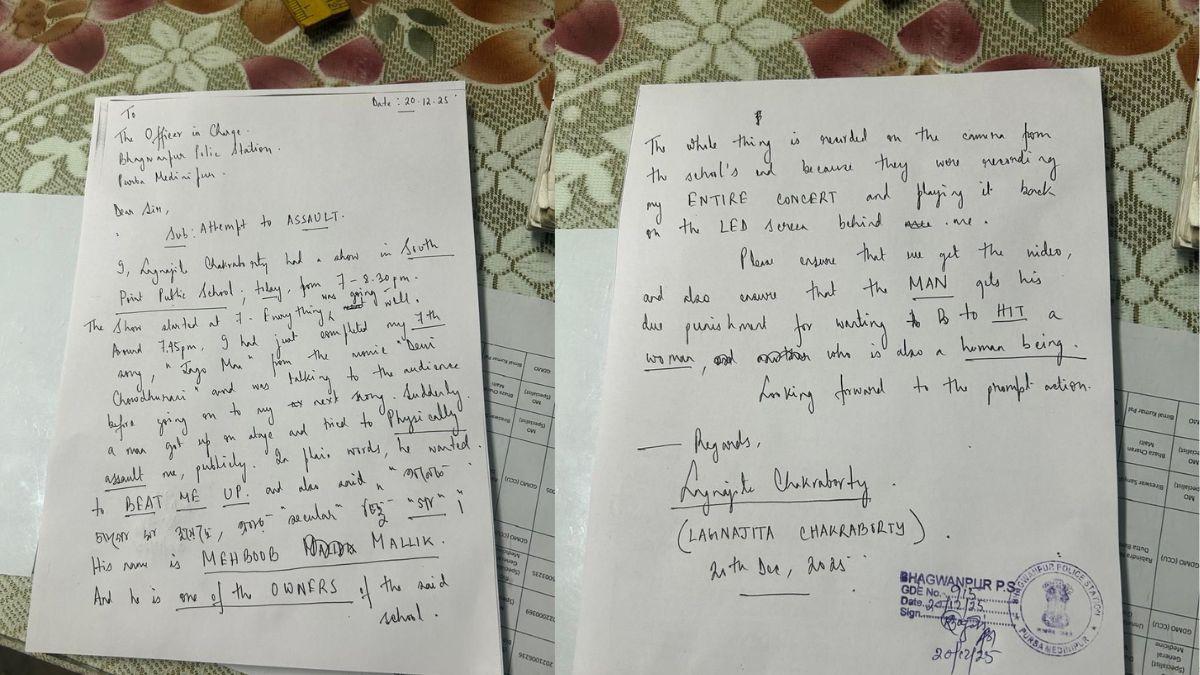 Date : 20.12.25
To
The Officer in Charge.
Bhagwanpur Polic Station.
Purba Medinipur.
Dear Sir,
Sub: Attempt to ASSAULT.
I, Lagnajita Chakraborty had a show in South
Point Public School, today, from 7 - 8.30 pm.
The Show started at 7. Everything was going well.
Around 7.45pm, I had just completed my 7th
song, "Jago Maa" from the movie "Devi
Chowdhurani" and was talking to the audience
before going on to my next song. Suddenly
a man got up on stage and tried to Physically
assault me, publicly. In plain words, he wanted
to BEAT ME UP. and also said "অনেক
জাগো মা হয়েছে, এবার "secular" কিছু "গা" !"
His name is MEHBOOB MALLIK.
And he is one of the OWNERS of the said
school.
The whole thing is recorded on the camera from
the school's end because they were recording
my ENTIRE CONCERT and playing it back
on the LED screen behind me.
Please ensure that we get the video,
and also ensure that the MAN gets his
due punishment for wanting to HIT a
woman, who is also a human being.
Looking forward to the prompt action.
Regards,
Lagnajita Chakraborty.
(LAGNAJITA CHAKRABORTY).
20th Dec, 2025
BHAGWANPUR P.S.
GDE No. 915
Date 20/12/25
Sign.
20/12/25
BHAGWANPUR POLICE STATION
PURBA MEDINIPUR
GDMO
Bimal Kumar Pal
MO
(Specialist)
Bhaza Charan
Maiti
MO
(Specialist)
GDMO (CCU)
GDMO (CCU)
2021006236
Bimal Kumar Pal
MO
(Specialist)
Bhaza Charan
Maiti
GDMO (CCU)
GDMO (CCU)
General
Medicine